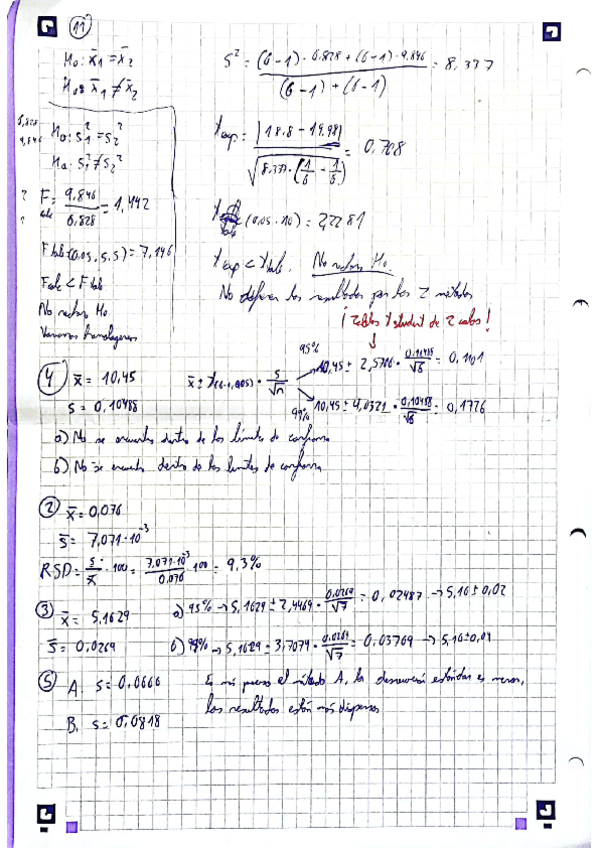 11
H₀: x̄₁ = x̄₂
Hₐ: x̄₁ ≠ x̄₂
S² = (6-1) · 6.828 + (6-1) · 9.846 / (6-1) + (6-1) = 8.337
6,828
9,846
H₀: s₁² = s₂²
Hₐ: s₁² ≠ s₂²
t exp = |18.8 - 19.98| / √(8.337 · (1/6 - 1/6)) = 0.708
F calc = 9,846 / 6,828 = 1,442
t tab (0.05, 10) = 2,2281
F tab (0,05, 5, 5) = 7,146
t exp < t tab. No rechazo H₀
Fcalc < F tab
No difieren los resultados por los 2 métodos
No rechazo H₀
¡Tablas t student de 2 colas!
Varianzas homogéneas
4 x̄ = 10,45
x̄ ± t · s/√n
95% 10,45 ± 2,5706 · 0,10488/√6 = 0,1101
s = 0,10488
99% 10,45 ± 4,0321 · 0,10488/√6 = 0,1726
a) No se encuentra dentro de los límites de confianza
b) No se encuentra dentro de los límites de confianza
2 x̄ = 0,076
s̄ = 7,071·10⁻³
RSD = s/x̄ · 100 = 7,071·10⁻³/0,076 · 100 = 9,3%
3 x̄ = 5,1629
a) 95% → 5,1629 ± 2,4469 · 0,0269/√7 = 0,02487 → 5,16 ± 0,02
s̄ = 0,0269
b) 99% → 5,1629 ± 3,7074 · 0,0269/√7 = 0,03769 → 5,16 ± 0,04
5 A. s = 0,0666
Es más preciso el método A, la desviación estándar es menor,
los resultados están más dispersos
B. s = 0,0818